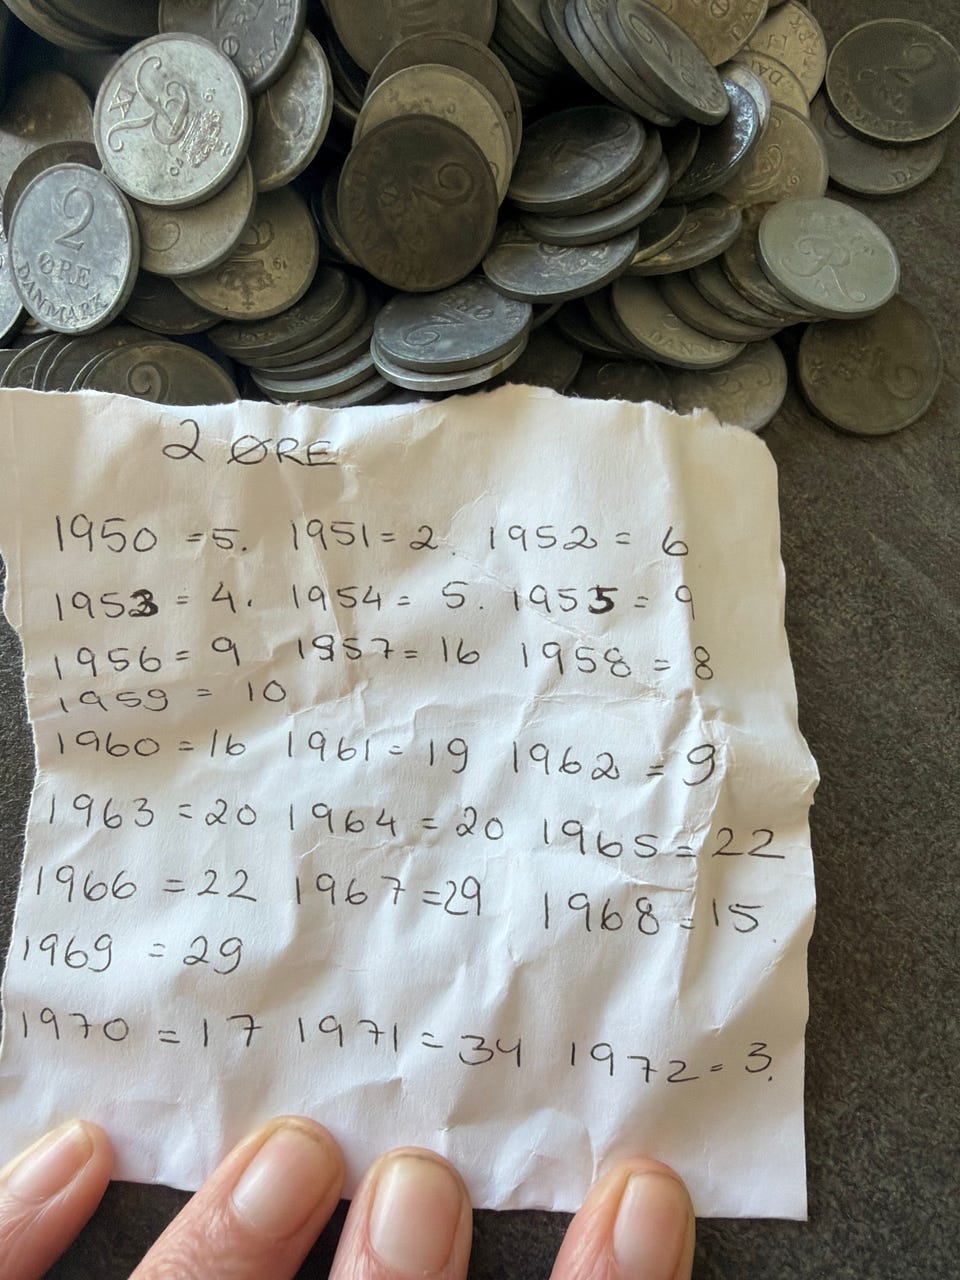 2
ØRE
DANMARK
2 ØRE
1950 = 5. 1951 = 2. 1952 = 6
1953 = 4. 1954 = 5. 1955 = 9
1956 = 9 1957 = 16 1958 = 8
1959 = 10
1960 = 16 1961 = 19 1962 = 9
1963 = 20 1964 = 20 1965 = 22
1966 = 22 1967 = 29 1968 = 15.
1969 = 29
1970 = 17 1971 = 34 1972 = 3.